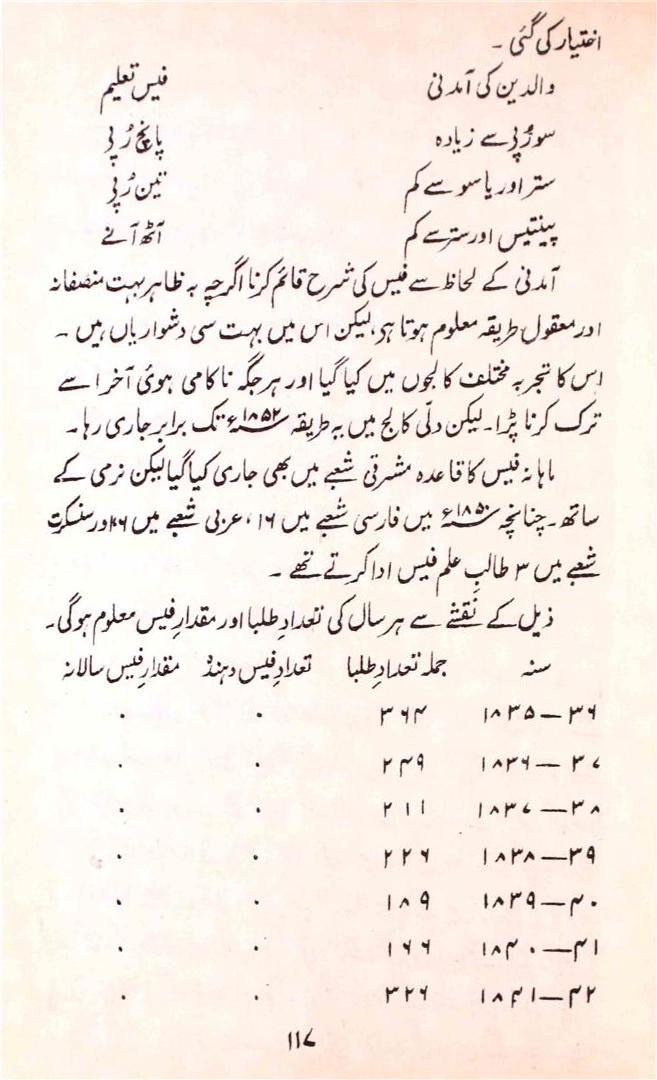 اختیار کی گئی ۔
والدین کی آمدنی	فیس تعلیم
سو رُپی سے زیادہ	پانچ رُپی
ستر اور یا سو سے کم	تین رُپی
پینتیس اور ستر سے کم	آٹھ آنے
آمدنی کے لحاظ سے فیس کی شرح قائم کرنا اگرچہ بہ ظاہر بہت منصفانہ
اور معقول طریقہ معلوم ہوتا ہی، لیکن اس میں بہت سی دشواریاں ہیں ۔
اس کا تجربہ مختلف کالجوں میں کیا گیا اور ہر جگہ ناکامی ہوئی آخر اسے
ترک کرنا پڑا۔ لیکن دلّی کالج میں یہ طریقہ ۱۸۵۲ء تک برابر جاری رہا۔
ماہانہ فیس کا قاعدہ مشرقی شعبے میں بھی جاری کیا گیا لیکن نرمی کے
ساتھ۔ چنانچہ ۱۸۵۰ء میں فارسی شعبے میں ۱۶، عربی شعبے میں اور سنسکرت
شعبے میں ۳ طالبِ علم فیس ادا کرتے تھے ۔
ذیل کے نقشے سے ہر سال کی تعدادِ طلبا اور مقدارِ فیس معلوم ہوگی۔
سنہ	جملہ تعدادِ طلبا	تعدادِ فیس دہندہ	مقدارِ فیس سالانہ
۱۸۳۵—۳۶	۳۶۴	۰	۰
۱۸۳۶—۳۷	۲۴۹	۰	۰
۱۸۳۷—۳۸	۲۱۱	۰	۰
۱۸۳۸—۳۹	۲۲۶	۰	۰
۱۸۳۹—۴۰	۱۸۹	۰	۰
۱۸۴۰—۴۱	۱۶۶	۰	۰
۱۸۴۱—۴۲	۳۲۶	۰	۰
۱۱۷